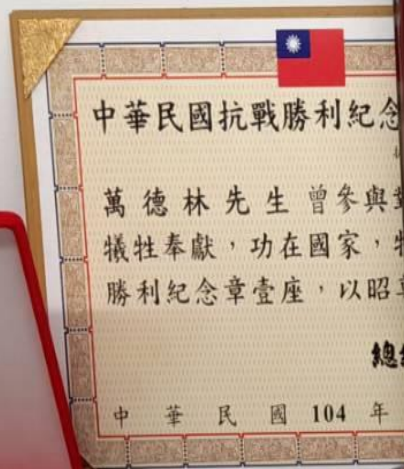 中華民國抗戰勝利紀念
萬德林先生曾參與
犧牲奉獻，功在國家，
勝利紀念章壹座，以昭
總
中華民國104年